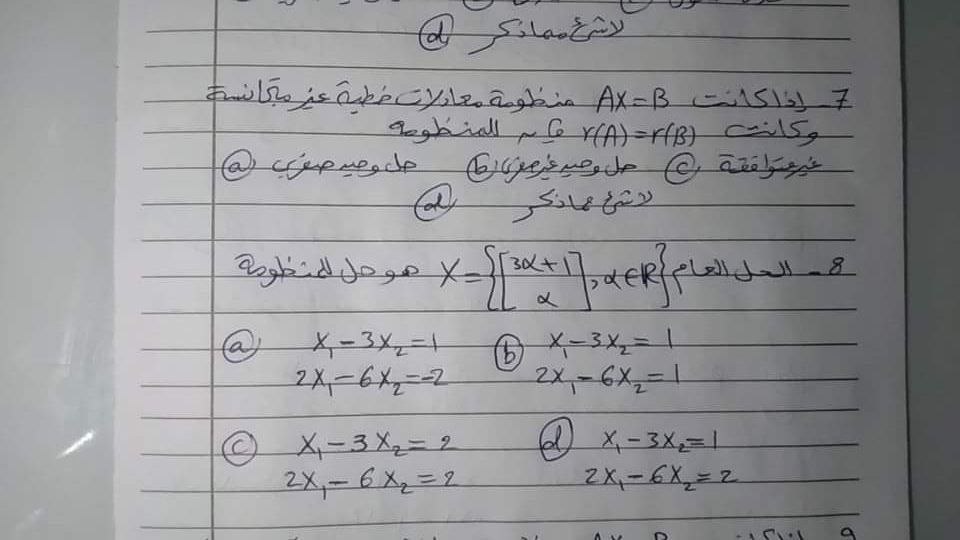 لا شئ مماذكر ⓓ
7- إذا كانت AX=B منظومة معادلات خطية غير متجانسة
وكانت r(A)=r(B) فإن للمنظومة
ⓐ حل وحيد صفري ⓑ حل وحيد غير صفري ⓒ غير متوافقة
ⓓ لا شئ مماذكر
8- الحل العام X={[3α+1
α], α∈R} هو حل للمنظومة
ⓐ X₁-3X₂=1 ⓑ X₁-3X₂=1
2X₁-6X₂=-2 2X₁-6X₂=1
ⓒ X₁-3X₂=2 ⓓ X₁-3X₂=1
2X₁-6X₂=2 2X₁-6X₂=2